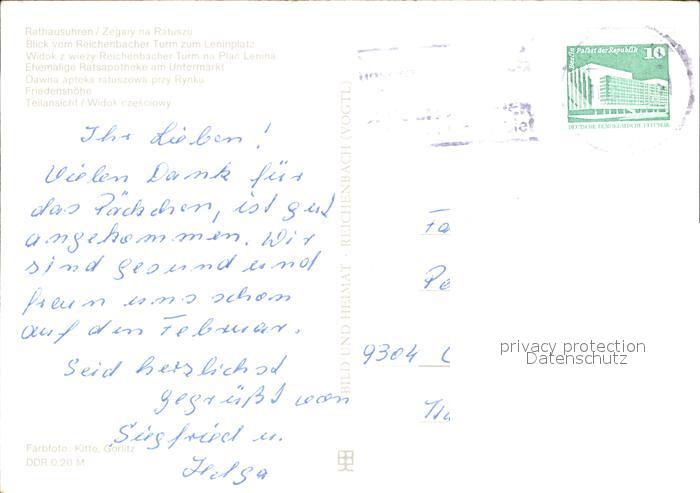 Rathausuhren / Zegary na Ratuszu
Blick vom Reichenbacher Turm zum Leninplatz
Widok z wieży Reichenbacher Turm na Plac Lenina
Ehemalige Ratsapotheke am Untermarkt
Dawna apteka ratuszowa przy Rynku
Friedenshöhe
Teilansicht / Widok częściowy
Ihr Lieben!
Vielen Dank für
das Päckchen, ist gut
angekommen. Wir
sind gesund und
freun uns schon
auf den Februar.
Seid herzlichst
gegrüßt von
Siegfried u.
Helga
Farbfoto: Kitte, Görlitz
DDR 0,20 M
BILD UND HEIMAT · REICHENBACH (VOGTL)
Berlin Palast der Republik 10
DEUTSCHE DEMOKRATISCHE REPUBLIK
Fa
Pe
9304
privacy protection
Datenschutz